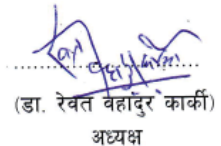 (डा. रेवत बहादुर कार्की)
अध्यक्ष